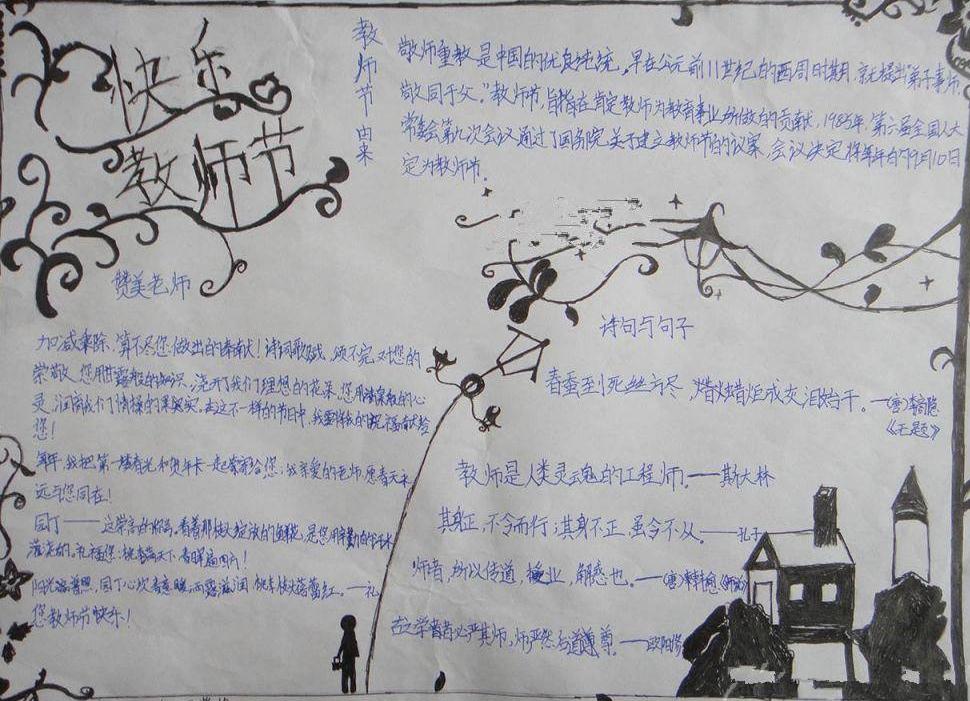 快乐
教师节
教师节由来
敬师重教是中国的优良传统。早在公元前11世纪的西周时期，就提出"弟子事师，
敬同于父。"教师节，旨在肯定教师为教育事业所做的贡献。1985年，第六届全国人大
常委会第九次会议通过了国务院关于建立教师节的议案，会议决定将每年的9月10日
定为教师节。
赞美老师
加减乘除，算不尽您做出的奉献！诗词歌赋，颂不完对您的
崇敬。您用甘露般的知识，浇开了我们理想的花朵，您用清泉般的心
灵，润育我们情操的果实。在这不一样的节日中，我要将我的祝福献给
您！
每年，我把第一缕春光和贺年卡一起寄给您，我亲爱的老师，愿春天永
远与您同在！
园丁——这崇高的称号。看着那绽放的鲜花，是您用辛勤的汗水
祝福您：桃李满天下，春晖遍四方！
阳光普照，园丁心坎春意暖，雨露滋润，桃李枝头蓓蕾红。
您教师节快乐！
诗句与句子
春蚕到死丝方尽，蜡炬成灰泪始干。——（唐）李商隐
《无题》
教师是人类灵魂的工程师。——斯大林
其身正，不令而行；其身不正，虽令不从。——孔子
师者，所以传道，授业，解惑也。——（唐）韩愈《师说》
古之学者必严其师，师严然后道尊。——欧阳修